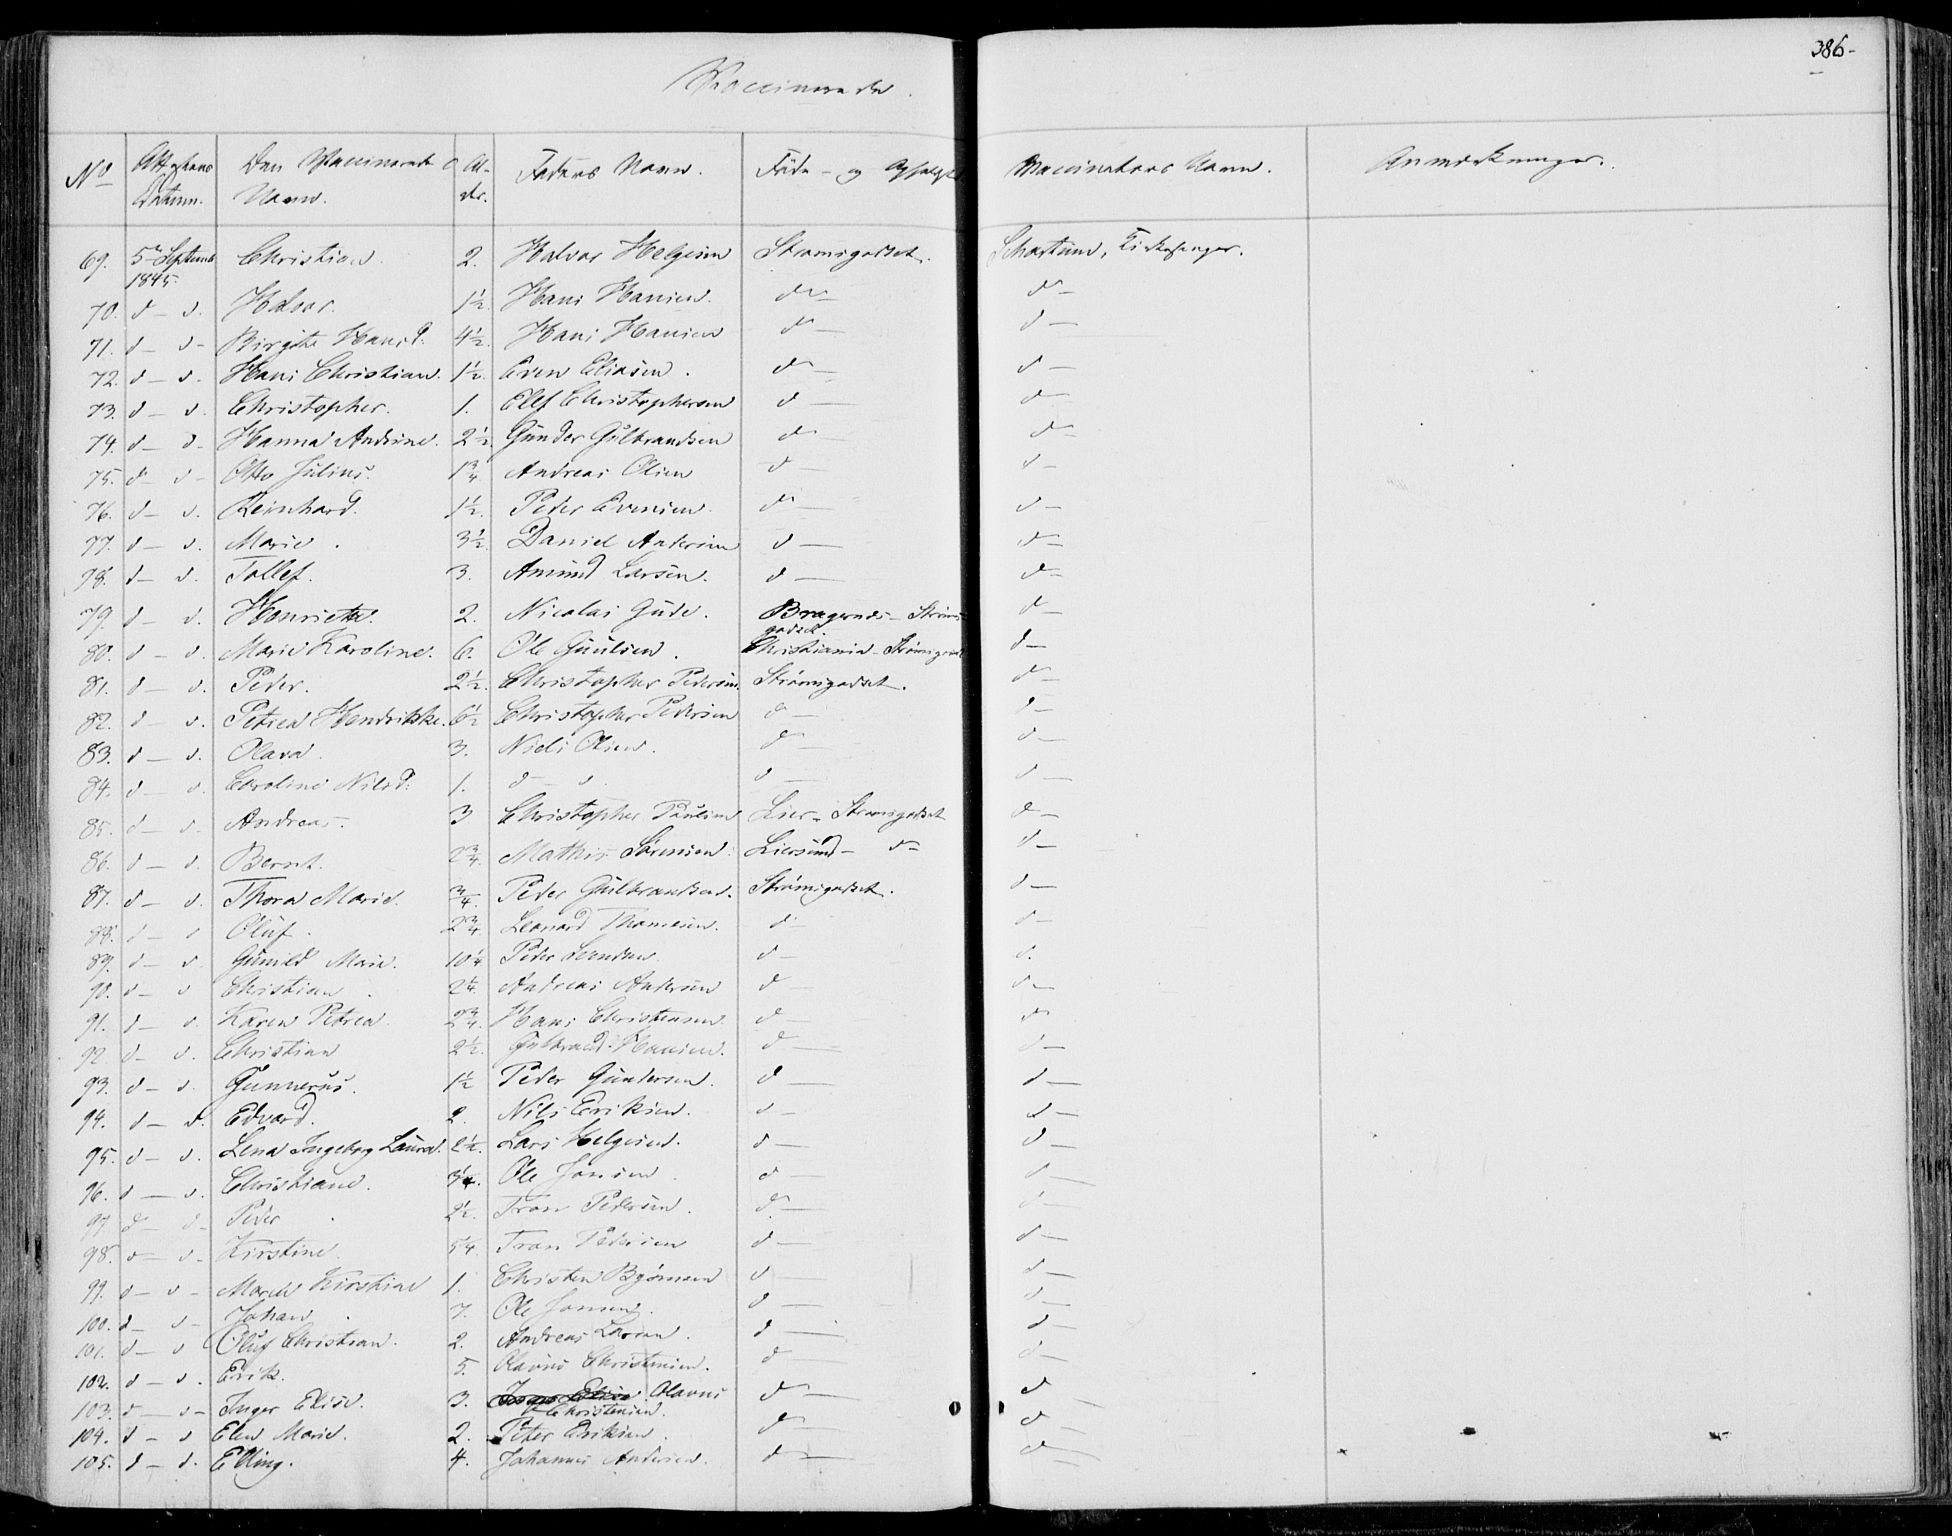 386-
Vaccinerede.
No | Attestens Datum. | Den Vaccineredes Navn. | Al-der. | Faders Navn. | Føde- og Opholds | Vaccinateurs Navn. | Anmærkninger.
69. | 5te Septemb 1845. | Christian. | 2. | Halvor Helgesen | Strømsgodset. | Schartum, Kirkesanger.
70. | d - d. | Halvor. | 1½. | Hans Hansen. | d - | d -
71. | d - d - | Birgitte Hansd. | 4½. | Hans Hansen | d - | d -
72. | d - d. | Hans Christian. | 1½. | Even Eliasen. | d - | d -
73. | d - d. | Christopher. | 1. | Ellef Christophersen | d - | d -
74. | d - d - | Hanna Andrine. | 2½. | Gunder Gulbrandsen | d - | d -
75. | d - d - | Otto Julius. | 1¾ | Andreas Olsen | d - | d -
76. | d - d. | Reinhard. | 1½. | Peder Evensen. | d - | d -
77. | d - d. | Marie. | 3½. | Daniel Andersen | d - | d -
78. | d - d. | Tollef. | 3. | Amund Larsen. | d - | d -
79. | d - d. | Henriette. | 2. | Nicolai Gude. | Bragernes - Strømsgodset. | d -
80. | d - d. | Marie Karoline. | 6. | Ole Guulsen. | Christiania - Strømsgods | d -
81. | d - d. | Peder. | 2½. | Christopher Pedersen. | Strømsgodset. | d -
82. | d - d. | Petrea Hendrikke. | 6½ | Christopher Pedersen | d - | d -
83. | d - d. | Olava. | 3. | Niels Olsen. | d - | d -
84. | d - d. | Caroline Nilsd. | 1. | d - d. | d - | d -
85. | d - d. | Andreas. | 3 | Christopher Paulsen | Lier - Strømsgodset | d -
86. | d - d. | Bernt. | 2¾. | Mathis Sørensen. | Liersund - d - | d -
87. | d - d. | Thora Marie. | ¾. | Peder Gulbrandsen. | Strømsgodset. | d -
88. | d - d | Oluf. | 2¾ | Leonard Thomesen. | d - | d -
89. | d - d. | Gunild Marie. | 10¼ | Peder | d - | d.
90. | d - d | Christian. | 2¼. | Andreas Andersen | d - | d -
91. | d - d. | Karen Petrea. | 2¾. | Hans Christensen. | d - | d -
92 | d - d. | Christian | 2½. | Gulbrand Hansen. | d - | d -
93. | d - d. | Gunnerus. | 1½ | Peder Gundersen. | d - | d -
94. | d - d. | Edvard. | 2. | Nils Eriksen. | d - | d -
95. | d - d. | Lena Ingeborg Laura. | 2½. | Lars Helgesen. | d - | d -
96. | d - d. | Christiane. | 3¼. | Ole Jonsen. | d - | d -
97. | d - d - | Peder. | 2½. | Tron Pedersen. | d - | d -
98. | d - d - | Kirstine. | 5¼. | Tron Pedersen | d - | d -
99. | d - d - | Maren Kirstine | 1. | Christen Bjørnsen | d | d -
100. | d - d - | Johan. | 7. | Ole Jonsen. | d - | d -
101. | d - d | Oluf Christian. | 2. | Andreas Larsen. | d - | d -
102. | d - d. | Erik. | 5. | Olavus Christensen. | d - | d -
103. | d - d - | Inger Elise. | 3. | Olavus Christensen. | d - | d
104. | d - d | Elen Marie. | 2. | Peter Eriksen. | d - | d -
105. | d - d. | Elling. | 4. | Johannes Andersen. | d - | d -